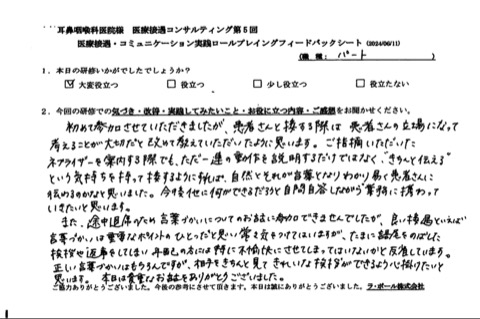 耳鼻咽喉科医院様　医療接遇コンサルティング第5回
医療接遇・コミュニケーション実践ロールプレイングフィードバックシート (2024/06/11)
(職種: パート )
1．本日の研修いかがでしたでしょうか？
☑ 大変役立つ　□ 役立つ　□ 少し役立つ　□ 役立たない
2．今回の研修での気づき・改善・実践してみたいこと・お役に立つ内容・ご感想をお聞かせください。
初めて参加させていただきましたが、患者さんと接する際は 患者さんの立場になって
考えることが大切だと改めて教えていただいたように思います。ご指摘いただいた
ネブライザーを案内する際でも、ただ一連の動作を説明するだけではなく、"きちんと伝える"
という気持ちを持って接するように行けば、自然とそれが言葉となりわかり易く患者さんに
伝わるのかなと思いました。今後他に何ができるだろうと自問自答しながら業務に携わって
いきたいと思います。
また、途中退席のため言葉づかいについてのお話に参加できませんでしたが、良い接遇といえば
言葉づかいは重要なポイントのひとつだと思い常々気をつけてはいますが、たまに語尾をのばした
挨拶や返事をしてしまい年配の方には特に不愉快にさせてしまってはいないかと反省しています。
正しい言葉づかいはもちろんですが、相手をきちんと見てきれいな挨拶ができるよう心掛けたいと
思います。本日は貴重なお話をありがとうございました。
ご協力ありがとうございました。今後の参考にさせて頂きます。本日は誠にありがとうございました。ラ・ポール株式会社